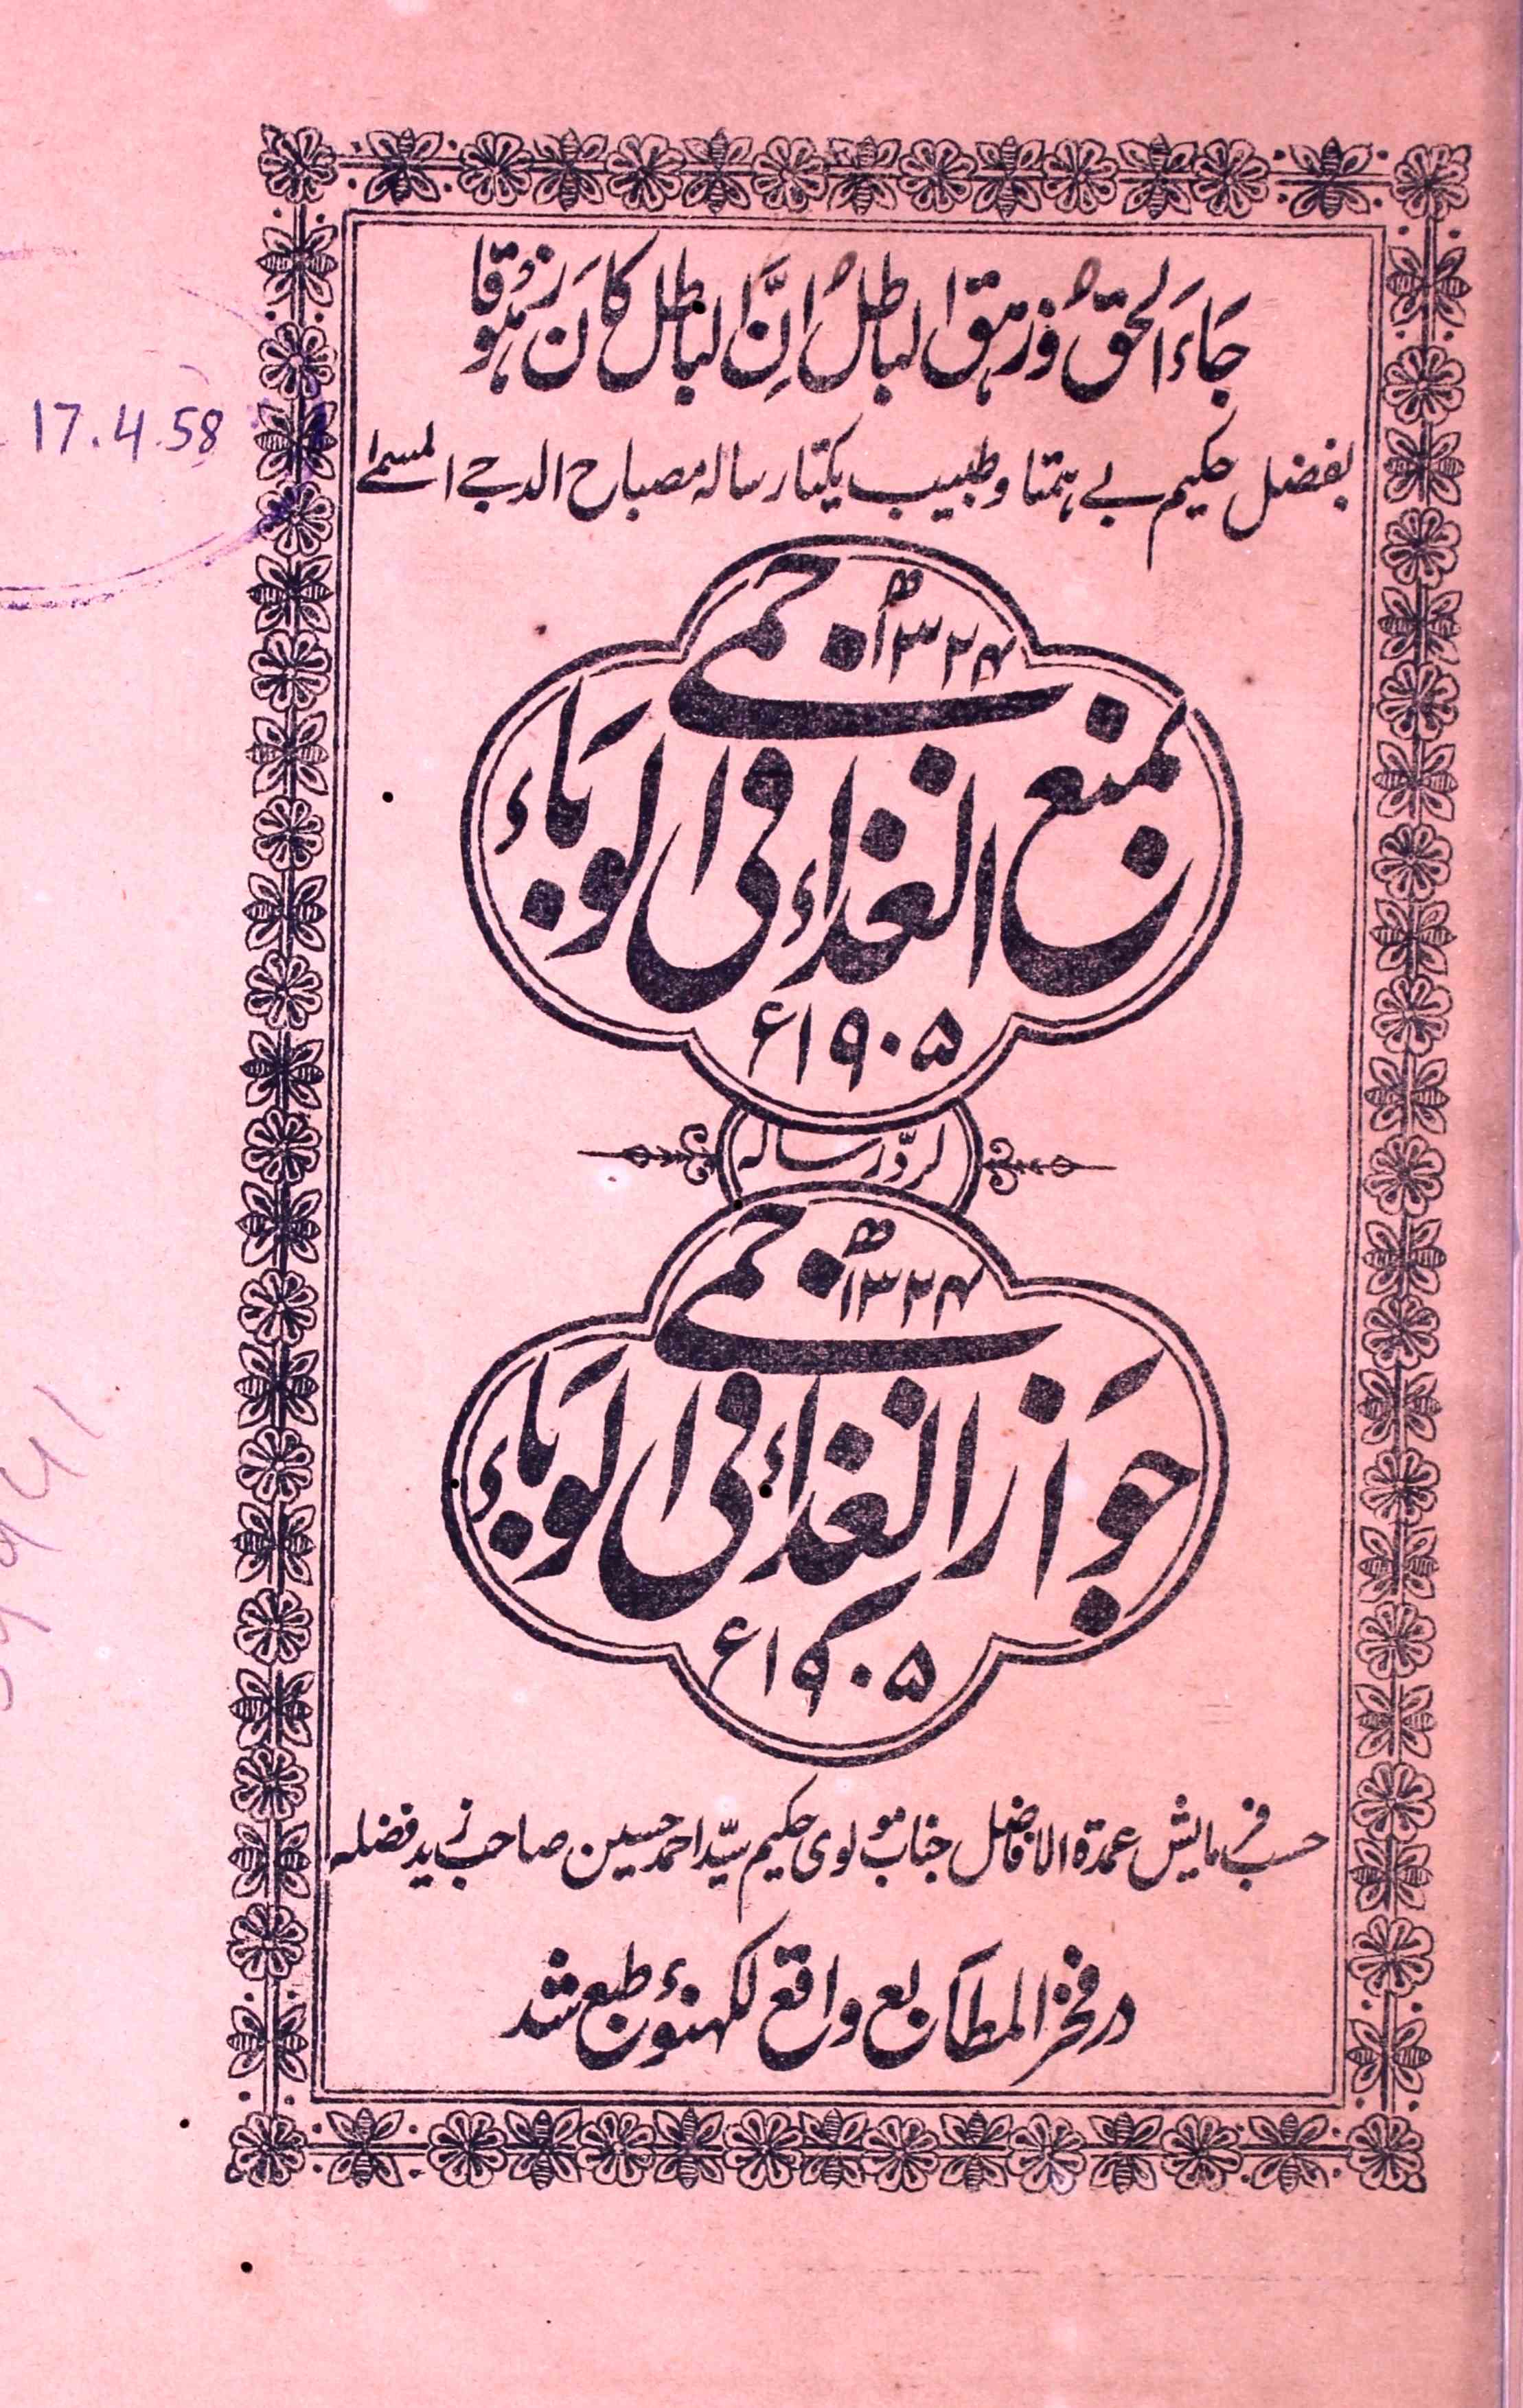 جَاءَ الحَقُّ وَزہَقَ الباطلُ اِنَّ الباطل کانَ زہُوقا
بفضل حکیم بے ہمتا و طبیب یکتا رسالہ مصباح الدجے المسمے
۱۳۲۴ھ
بمنع الغذاء فی الوباء
۱۹۰۵ء
لردّ رسالہ
۱۳۲۴ھ
جواز الغذاء فی الوباء
۱۹۰۵ء
حسب فرمایش عمدۃ الافاضل جناب مولوی حکیم سیّد احمد حسین صاحب زید فضلہ
در فخر المطابع واقع لکھنؤ طبع شد
17.4.58